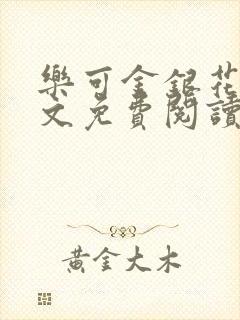 樂可金銀花
文免費閱讀
黃金大木